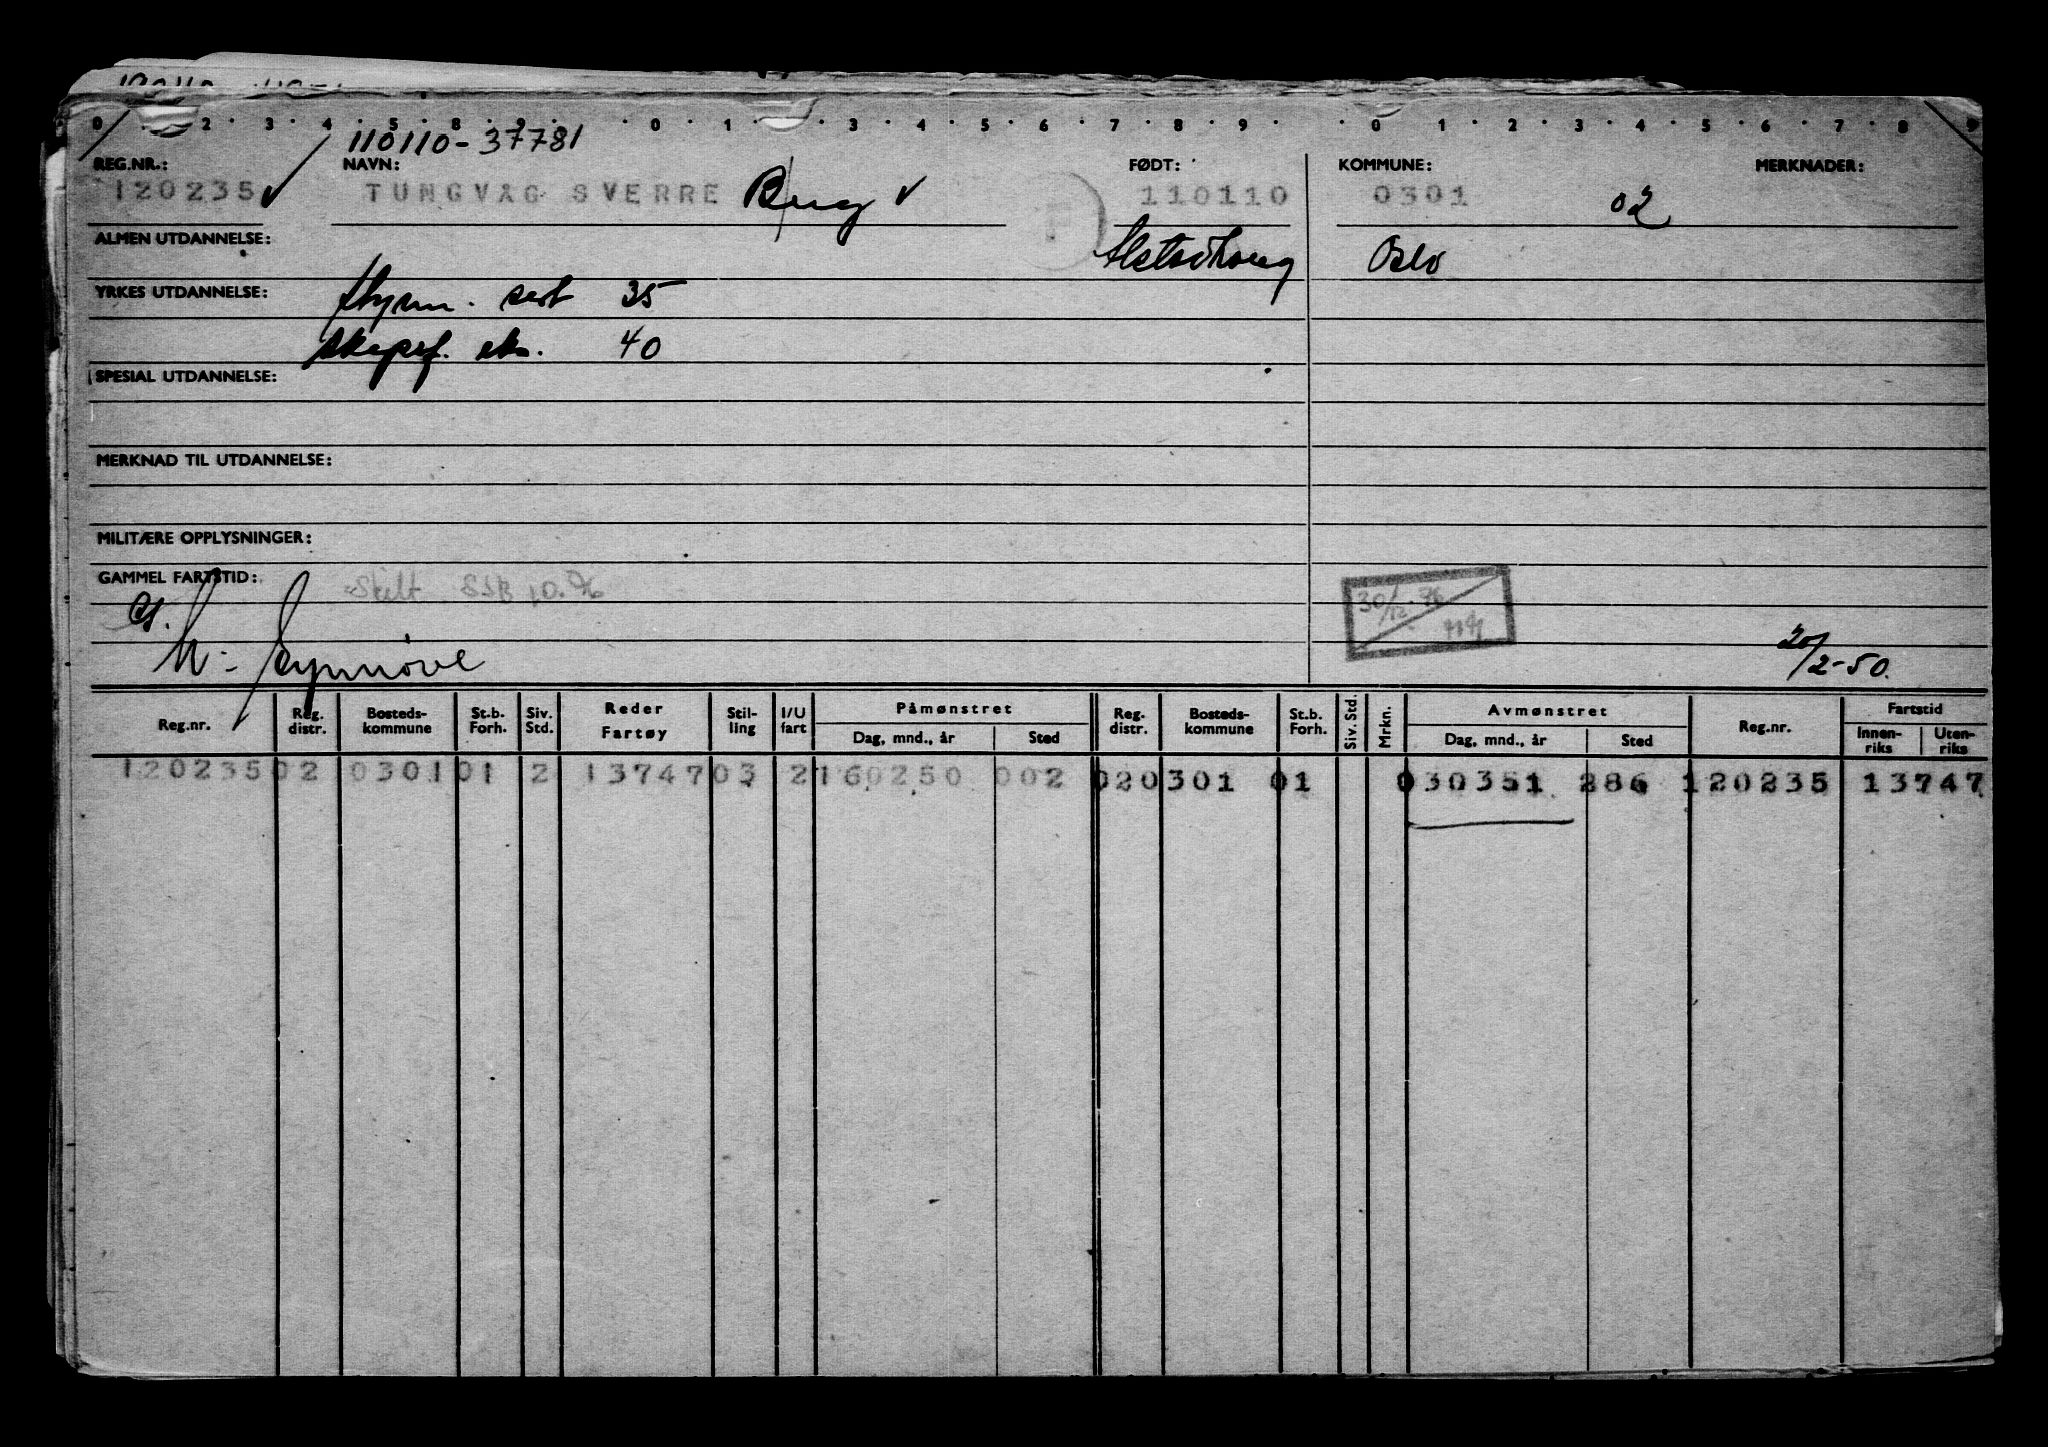 0 2 3 4 5 8 9 0 1 3 4 5 6 7 8 9 0 1 2 3 4 5 6 7 8 9
110110-37781
REG.NR.: NAVN: FØDT: KOMMUNE: MERKNADER:
120235 TUNGVAG SVERRE Bug 110110 0301 02
ALMEN UTDANNELSE: Alstadhaug Oslo
YRKES UTDANNELSE: styrm. sert 35
skipsf. eks. 40
SPESIAL UTDANNELSE:
MERKNAD TIL UTDANNELSE:
MILITÆRE OPPLYSNINGER:
GAMMEL FARTSTID: Skilt
30/12-76
20/2-50.
Synnøve
Reg.nr. Reg. distr. Bosteds-kommune St.b. Forh. Siv. Std. Reder Fartøy Stil-ling I/U fart Påmønstret Dag, mnd., år Sted Reg. distr. Bosteds-kommune St.b. Forh. Siv. Std. Mrkn. Avmønstret Dag, mnd., år Sted Reg.nr. Fartstid Innen-riks Uten-riks
120235 02 0301 01 2 13747 03 2 160250 002 02 0301 01 030351 286 120235 13747